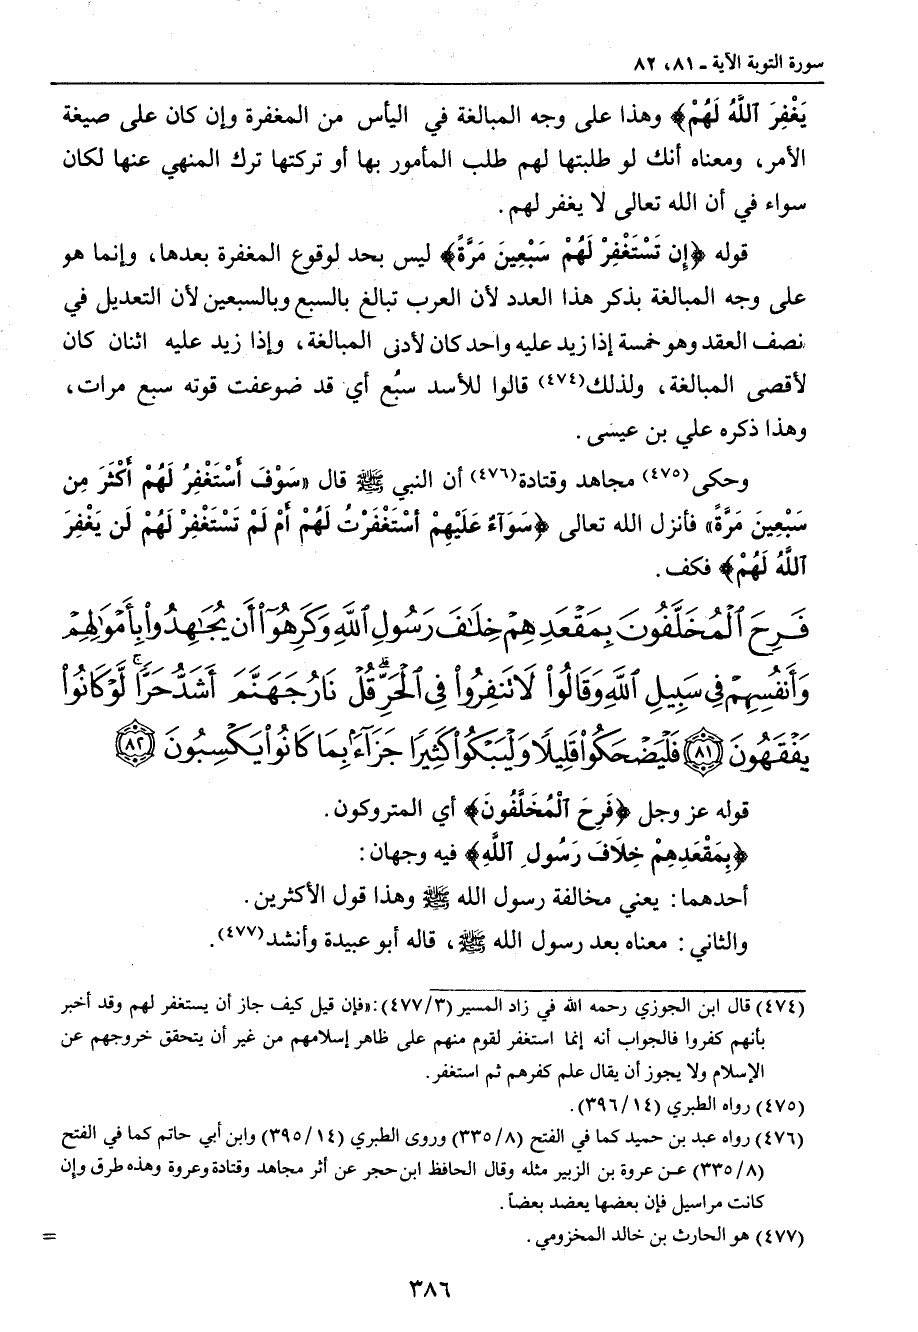 سورة التوبة الآية ـ ٨١، ٨٢
يَغْفِرَ ٱللَّهُ لَهُمْ﴾ وهذا على وجه المبالغة في اليأس من المغفرة وإن كان على صيغة
الأمر، ومعناه أنك لو طلبتها لهم طلب المأمور بها أو تركتها ترك المنهي عنها لكان
سواء في أن الله تعالى لا يغفر لهم.
قوله ﴿إِن تَسْتَغْفِرْ لَهُمْ سَبْعِينَ مَرَّةً﴾ ليس بحد لوقوع المغفرة بعدها، وإنما هو
على وجه المبالغة بذكر هذا العدد لأن العرب تبالغ بالسبع وبالسبعين لأن التعديل في
نصف العقد وهو خمسة إذا زيد عليه واحد كان لأدنى المبالغة، وإذا زيد عليه اثنان كان
لأقصى المبالغة، ولذلك(٤٧٤) قالوا للأسد سبُع أي قد ضوعفت قوته سبع مرات،
وهذا ذكره علي بن عيسى.
وحكى(٤٧٥) مجاهد وقتادة(٤٧٦) أن النبي ﷺ قال «سَوْفَ أَسْتَغْفِرُ لَهُمْ أَكْثَرَ مِن
سَبْعِينَ مَرَّةً» فأنزل الله تعالى ﴿سَوَآءٌ عَلَيْهِمْ أَسْتَغْفَرْتُ لَهُمْ أَمْ لَمْ تَسْتَغْفِرْ لَهُمْ لَن يَغْفِرَ
ٱللَّهُ لَهُمْ﴾ فكف.
فَرِحَ ٱلْمُخَلَّفُونَ بِمَقْعَدِهِمْ خِلَٰفَ رَسُولِ ٱللَّهِ وَكَرِهُوٓا۟ أَن يُجَٰهِدُوا۟ بِأَمْوَٰلِهِمْ
وَأَنفُسِهِمْ فِى سَبِيلِ ٱللَّهِ وَقَالُوا۟ لَا تَنفِرُوا۟ فِى ٱلْحَرِّ ۗ قُلْ نَارُ جَهَنَّمَ أَشَدُّ حَرًّا ۚ لَّوْ كَانُوا۟
يَفْقَهُونَ ﴿٨١﴾ فَلْيَضْحَكُوا۟ قَلِيلًا وَلْيَبْكُوا۟ كَثِيرًا جَزَآءًۢ بِمَا كَانُوا۟ يَكْسِبُونَ ﴿٨٢﴾
قوله عز وجل ﴿فَرِحَ ٱلْمُخَلَّفُونَ﴾ أي المتروكون.
﴿بِمَقْعَدِهِمْ خِلَافَ رَسُولِ ٱللَّهِ﴾ فيه وجهان:
أحدهما: يعني مخالفة رسول الله ﷺ وهذا قول الأكثرين.
والثاني: معناه بعد رسول الله ﷺ، قاله أبو عبيدة وأنشد(٤٧٧).
(٤٧٤) قال ابن الجوزي رحمه الله في زاد المسير (٤٧٧/٣):«فإن قيل كيف جاز أن يستغفر لهم وقد أخبر
بأنهم كفروا فالجواب أنه إنما استغفر لقوم منهم على ظاهر إسلامهم من غير أن يتحقق خروجهم عن
الإسلام ولا يجوز أن يقال علم كفرهم ثم استغفر.
(٤٧٥) رواه الطبري (٣٩٦/١٤).
(٤٧٦) رواه عبد بن حميد كما في الفتح (٣٣٥/٨) وروى الطبري (٣٩٥/١٤) وابن أبي حاتم كما في الفتح
(٣٣٥/٨) عن عروة بن الزبير مثله وقال الحافظ ابن حجر عن أثر مجاهد وقتادة وعروة وهذه طرق وإن
كانت مراسيل فإن بعضها يعضد بعضاً.
(٤٧٧) هو الحارث بن خالد المخزومي. =
٣٨٦